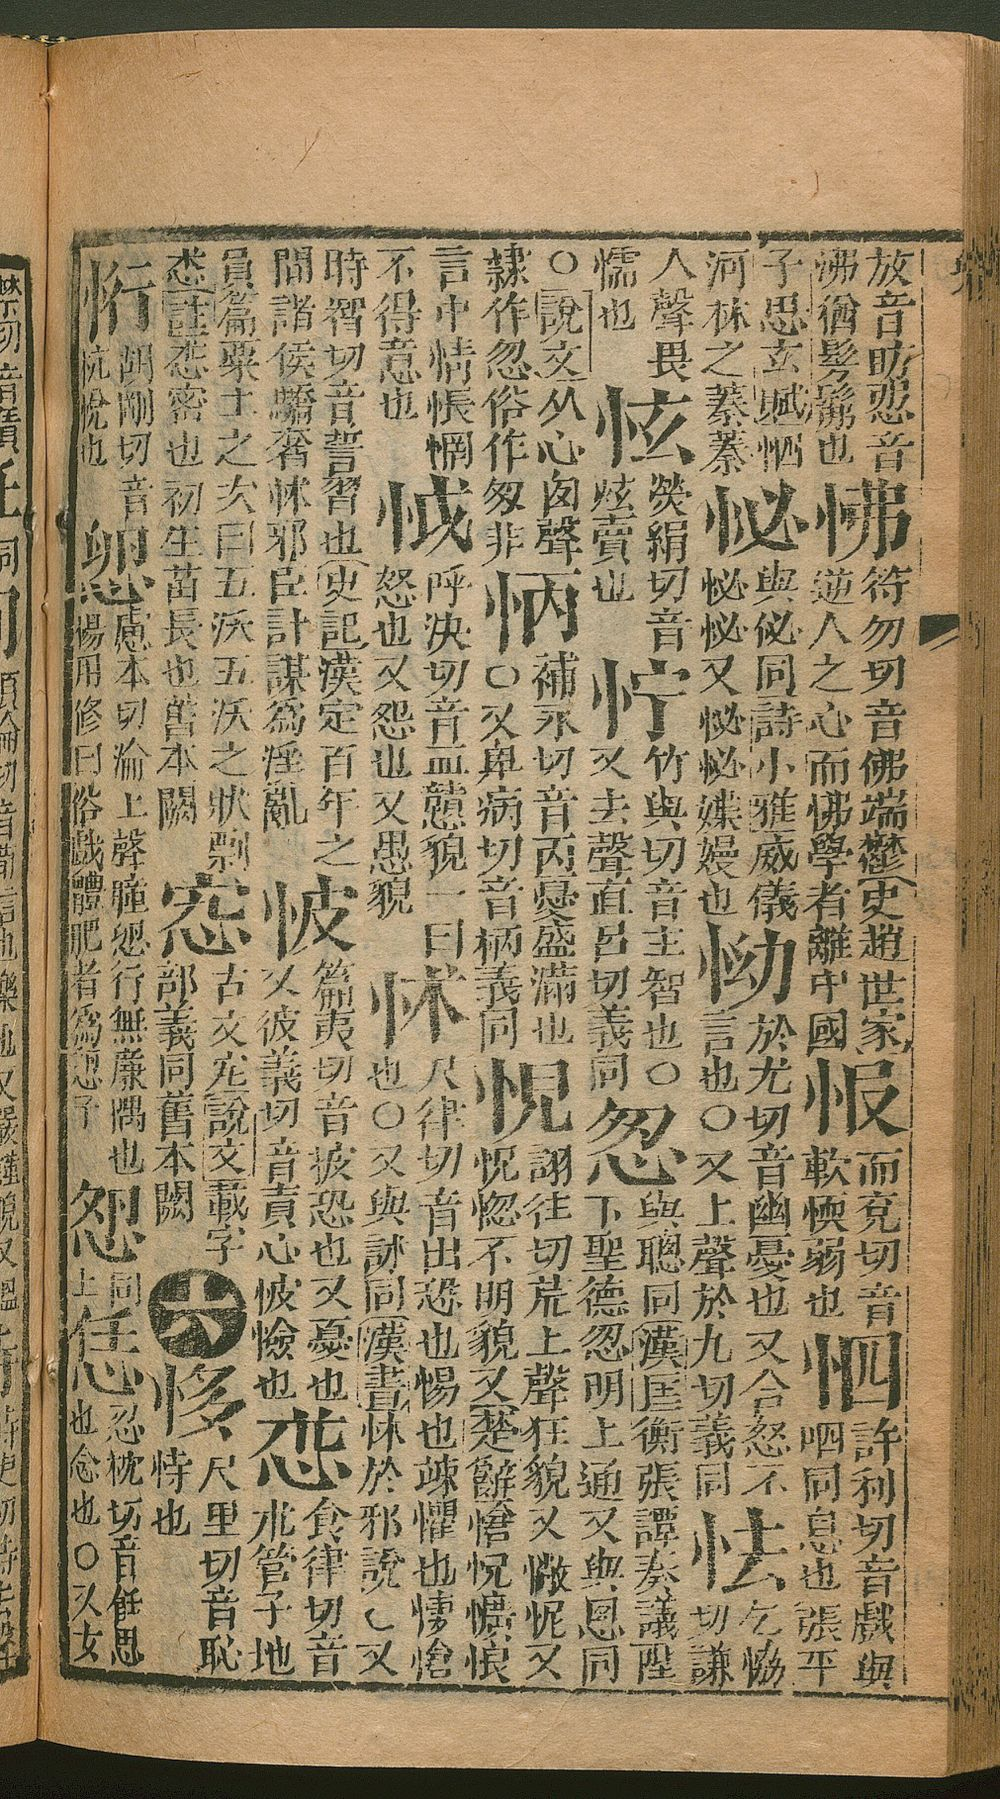 放音昉忽音
沸猶髣髴也
怫
符勿切音佛端鬱史趙世家
逆人之心而怫學者離中國
㤆
而兖切音
軟愞弱也
怬
許利切音戲與
呬同息也張平
子思玄賦怬
河林之蓁蓁
怭
與佖同詩小雅威儀
怭怭又怭怭媟嫚也
怮
於尤切音幽憂也又含怒不
言也〇又上聲於九切義同
怯
乞協
切謙
人聲畏
懦也
怰
熒絹切音
炫賣也
㤖
竹與切音主智也〇
又去聲直呂切義同
怱
與聰同漢匡衡張譚奏議陛
下聖德怱明上通又與恩同
〇說文从心囱聲
隸作忽俗作匆非
怲
補永切音丙憂盛滿也
〇又卑病切音柄義同
怳
詡往切荒上聲狂貌又怩又
怳惚不明貌又楚辭愴怳懭悢
言中情悵惘
不得意也
怴
呼決切音血貌一曰
怒也又怨也又愚貌
怵
尺律切音出恐也惕也竦懼也悽愴
也〇又與訹同漢書怵於邪說〇又
時習切音誓習也史記漢定百年之
間諸侯驕奢怵邪臣計謀為淫亂
怶
篇夷切音披恐也又憂也
又彼義切音賁心怶憸也
㤜
食律切音
朮管子地
員篇粟土之次曰五沃五沃之狀剽
㤜註㤜密也初生苗長也舊本闕
古文宛說文載宀
部義同舊本闕
六
恀
尺里切音恥
恃也
胡剛切音
忼悅也
盧本切淪上聲腫行無廉隅也
楊用修曰俗戲體肥者為子
怨
同
上
恁
忍枕切音飪思
也念也〇又女